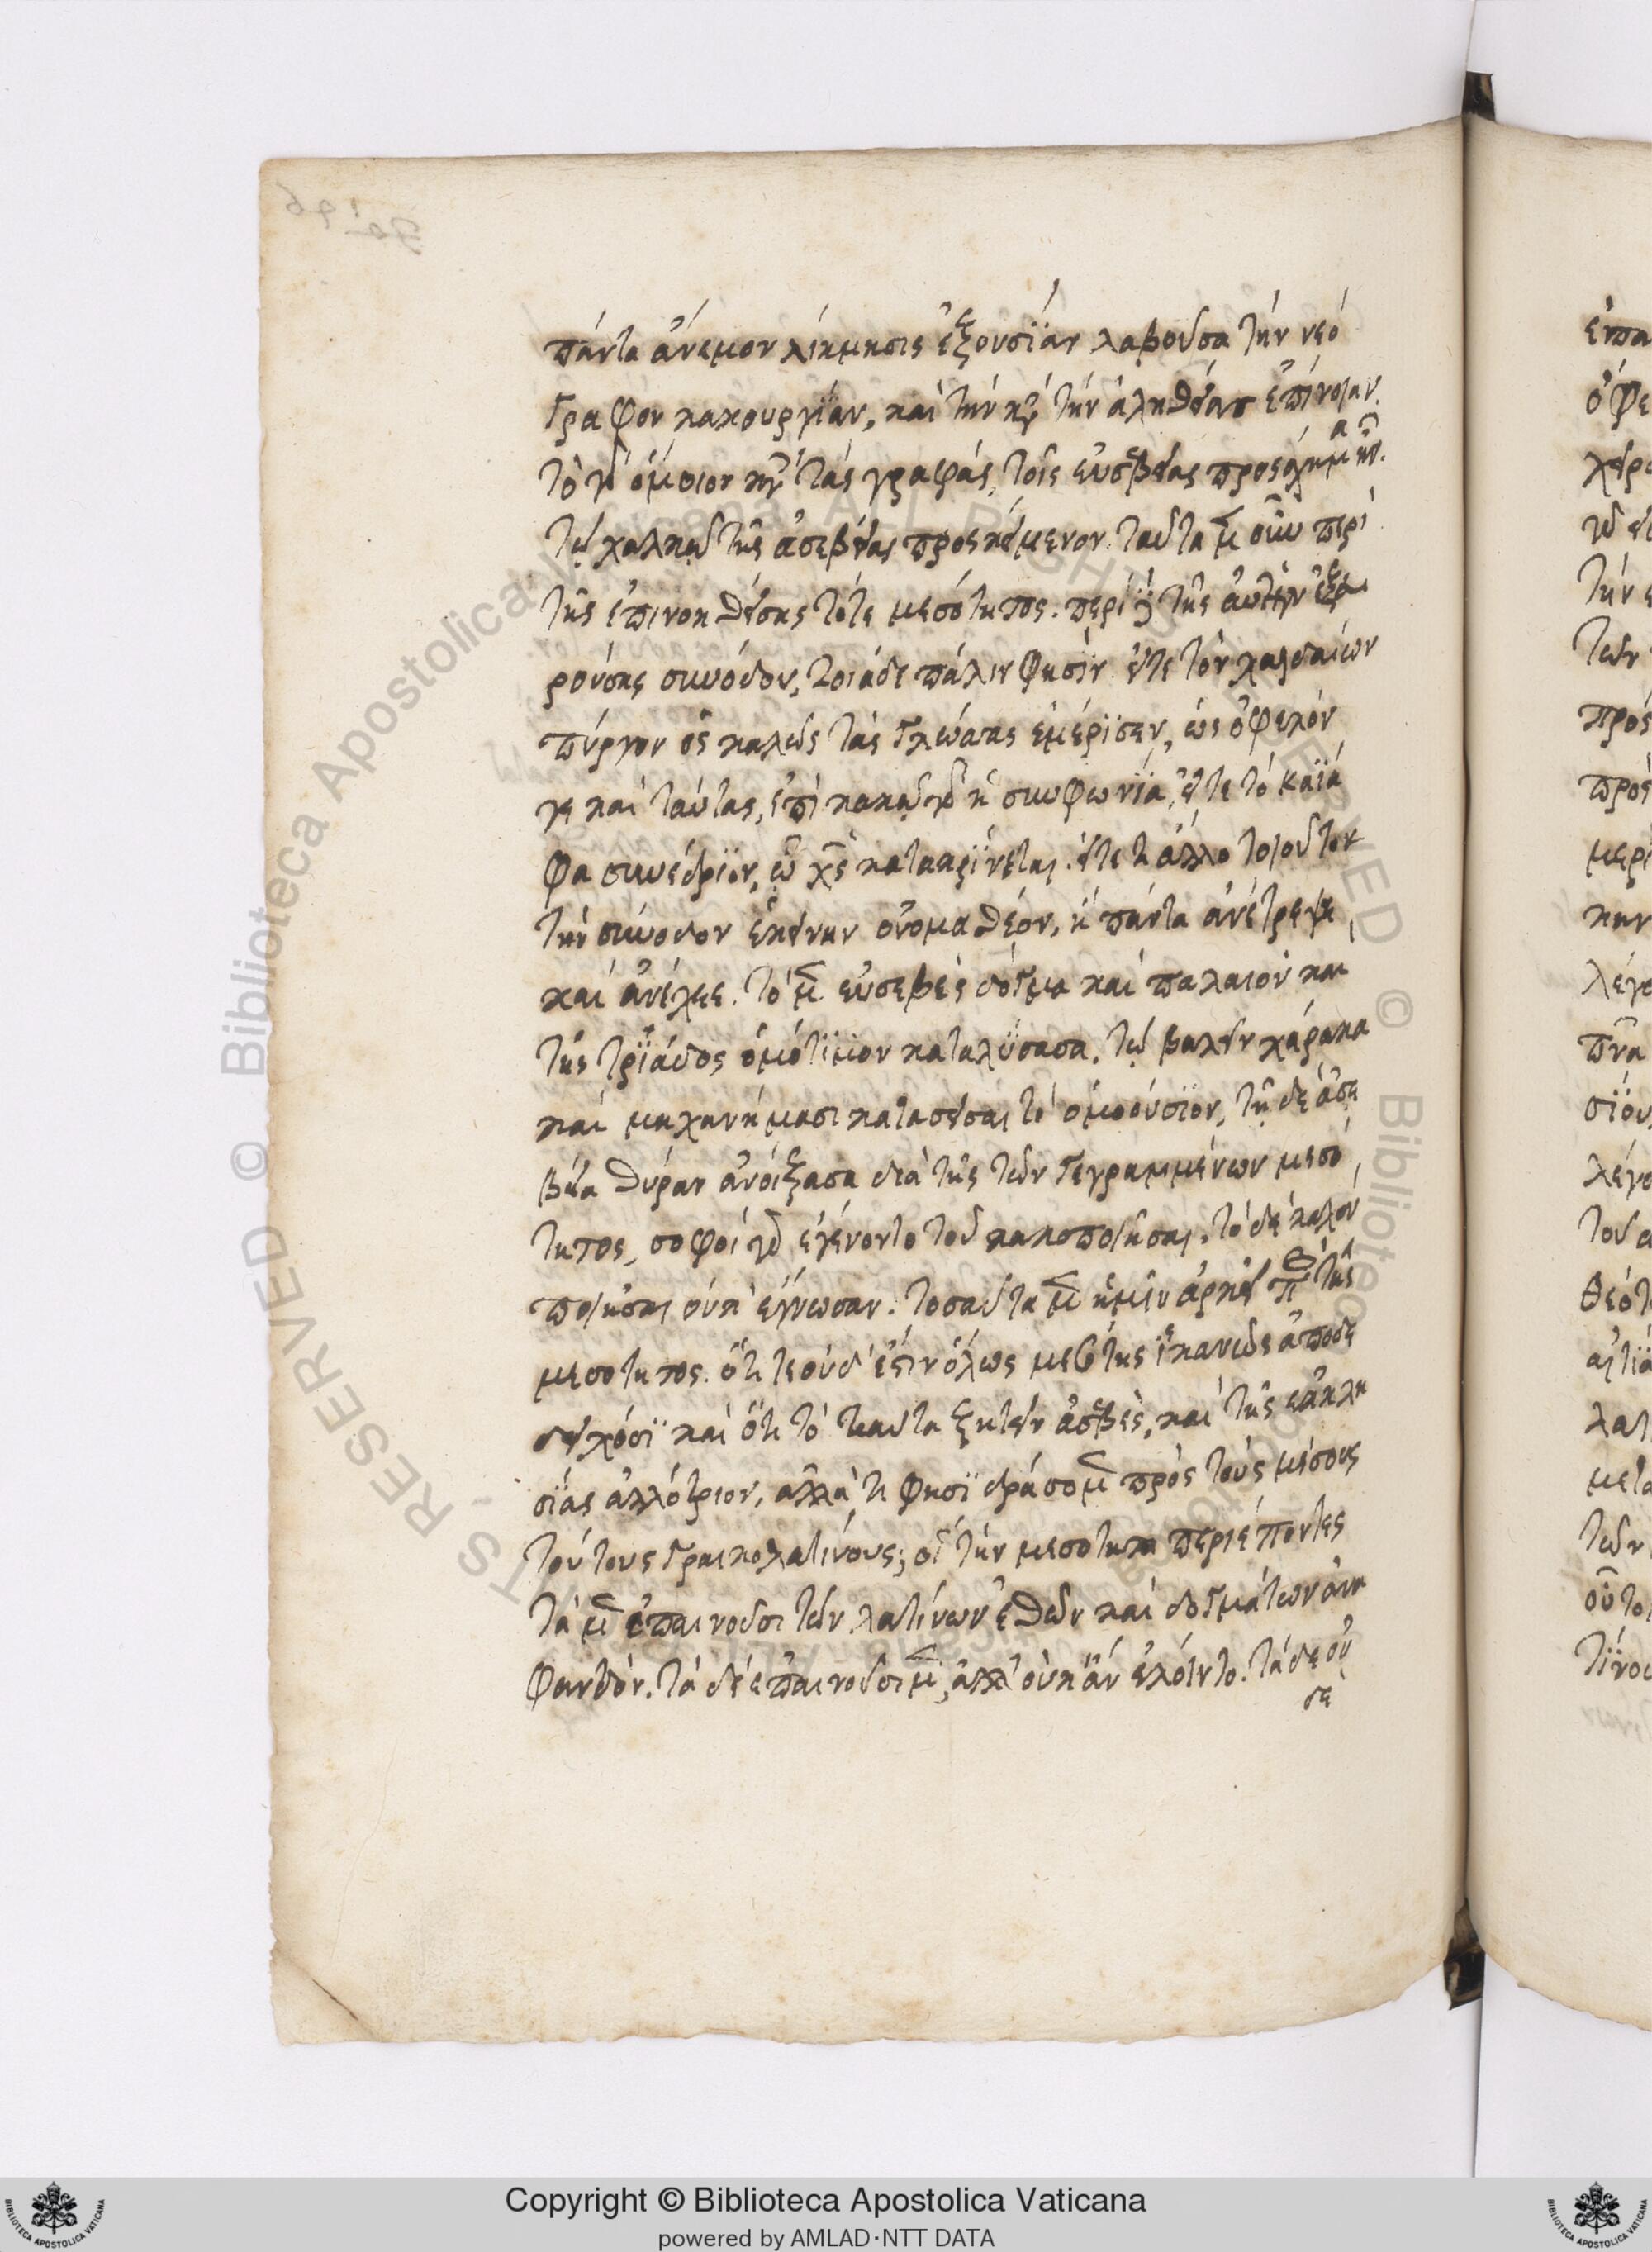 πάντα ἄνεμον λίκμησις ἐξουσίαν λαβοῦσα τὴν νεό
γραφον κακουργίαν, καὶ τὴν κατὰ τὴν ἀληθείας ἐπίνοιαν.
τὸ γὰρ ὅμοιον κατὰ τὰς γραφάς, τοῖς εὐσεβείας προσχήμα
τῷ χαλκῷ τῆς ἀσεβείας προσκείμενον. ταῦτα μὲν οὖν περὶ
τῆς ἐπινοηθείσης τότε μεσότητος. περὶ δὲ τῆς αὐτὴν ἐξευ
ρούσης συνόδου, τοιάδε πάλιν φησίν. εἴτε τὸν χαλδαίων
πύργον ὃς καλῶς τὰς γλώσσας ἐμέρισεν, ὡς ὄφελόν
γε καὶ ταύτας, ἐπὶ κακῷ γὰρ ἡ συμφωνία, εἴτε τὸ καϊά
φα συνέδριον, ᾧ χς κατακρίνεται. εἴτε τι ἄλλο τοιοῦτον
τὴν σύνοδον ἐκείνην ὀνομαστέον, ἣ πάντα ἀνέτρεψε
καὶ ἀνέχεε. τὸ μὲν εὐσεβὲς δόγμα καὶ παλαιὸν καὶ
τῆς τριάδος ὁμότιμον καταλύσασα, τῷ βαλεῖν χάρακα
καὶ μηχανήμασι κατασεῖσαι τὸ ὁμοούσιον, τῇ δὲ ἀσε
βείᾳ θύραν ἀνοίξασα διὰ τῆς τῶν γεγραμμένων μεσό
τητος, σοφοὶ γὰρ ἐγένοντο τοῦ κακοποιῆσαι, τὸ δὲ καλὸν
ποιῆσαι οὐκ ἔγνωσαν. τοσαῦτα μὲν ἡμῖν ἀρκεῖ περὶ τῆς
μεσότητος. ὅτι τε οὐδ' ἔστιν ὅλως μεσότης ἱκανῶς ἀποδέ
δειχόσι καὶ ὅτι τὸ ταῦτα ζητεῖν ἀσεβὲς, καὶ τῆς ἐκκλη
σίας ἀλλότριον, ἀλλὰ τί φησι δράσομεν πρὸς τοὺς μέσους
τούτους γραικολατίνους; οἳ τὴν μεσότητα περιέποντες
τὰ μὲν ἐπαινοῦσι τῶν λατίνων ἐθῶν καὶ δογμάτων ἀνα
φανδόν. τὰ δὲ ἐπαινοῦσι μέν, ἀλλ' οὐκ ἂν ἕλοιντο. τὰ δὲ οὐ
σε